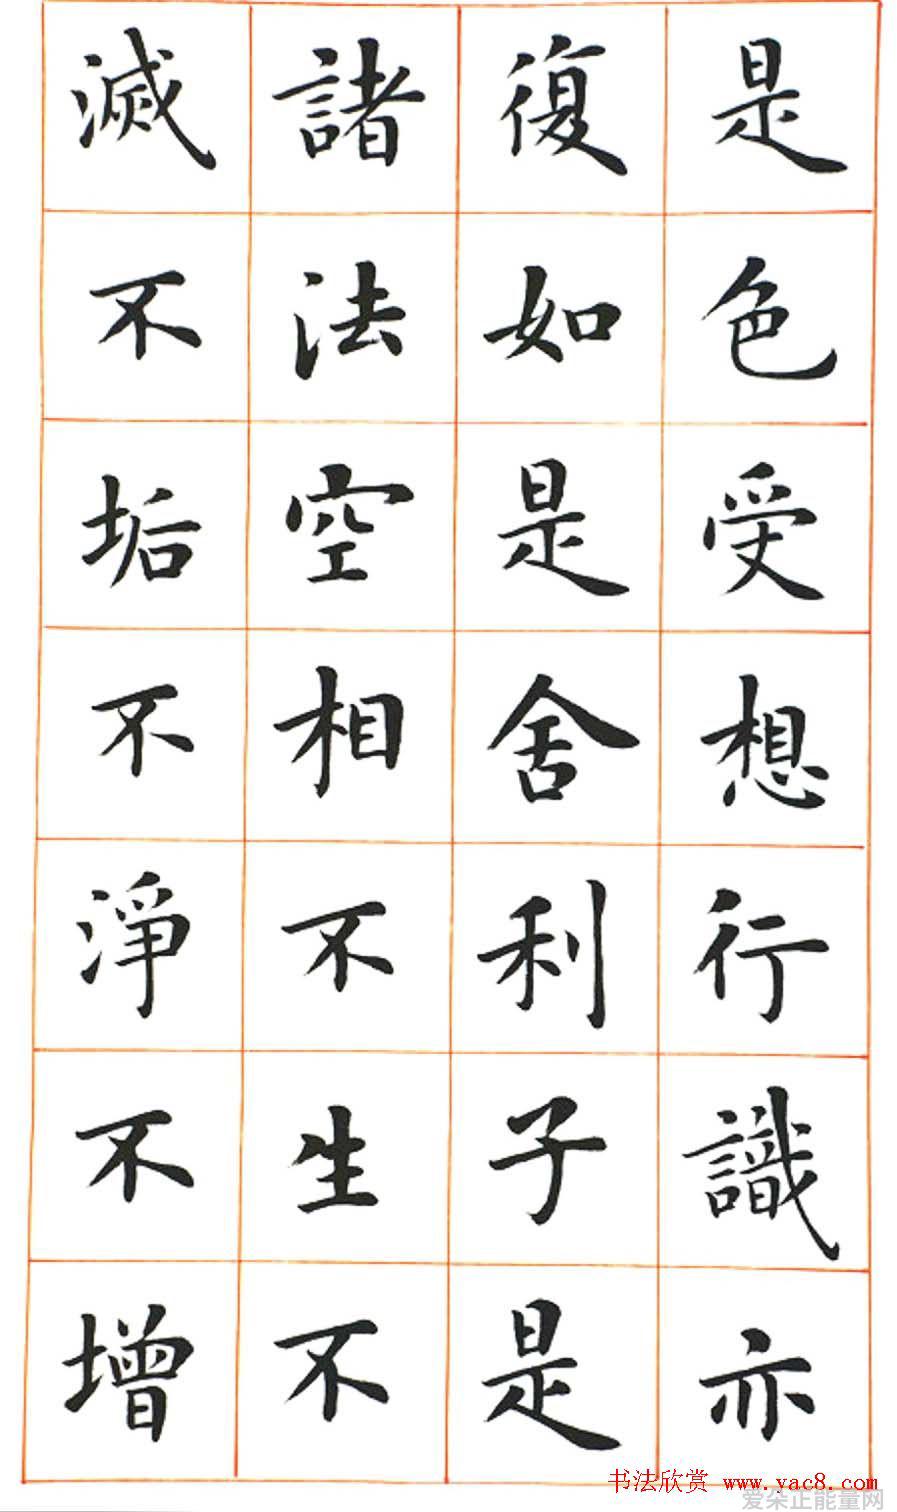 是色受想行識亦
復如是舍利子是
諸法空相不生不
滅不垢不淨不增
书法欣赏 www.yac8.com
爱朵正能量网